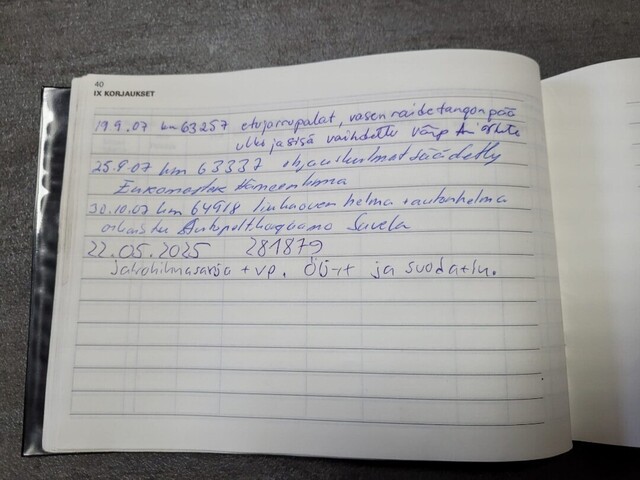 40
IX KORJAUKSET
19.9.07 km 63257 etujarrupalat, vasen raidetangonpää
ulko ja sisä vaihdettu
25.9.07 km 63337 ohjauskulmat säädetty
Hämeenlinna
30.10.07 km 64918 liukuoven helma + autonhelma
Autopelti Savela
22.05.2025 281879
Jakohihnasarja + vp. Öljyt ja suodatin.